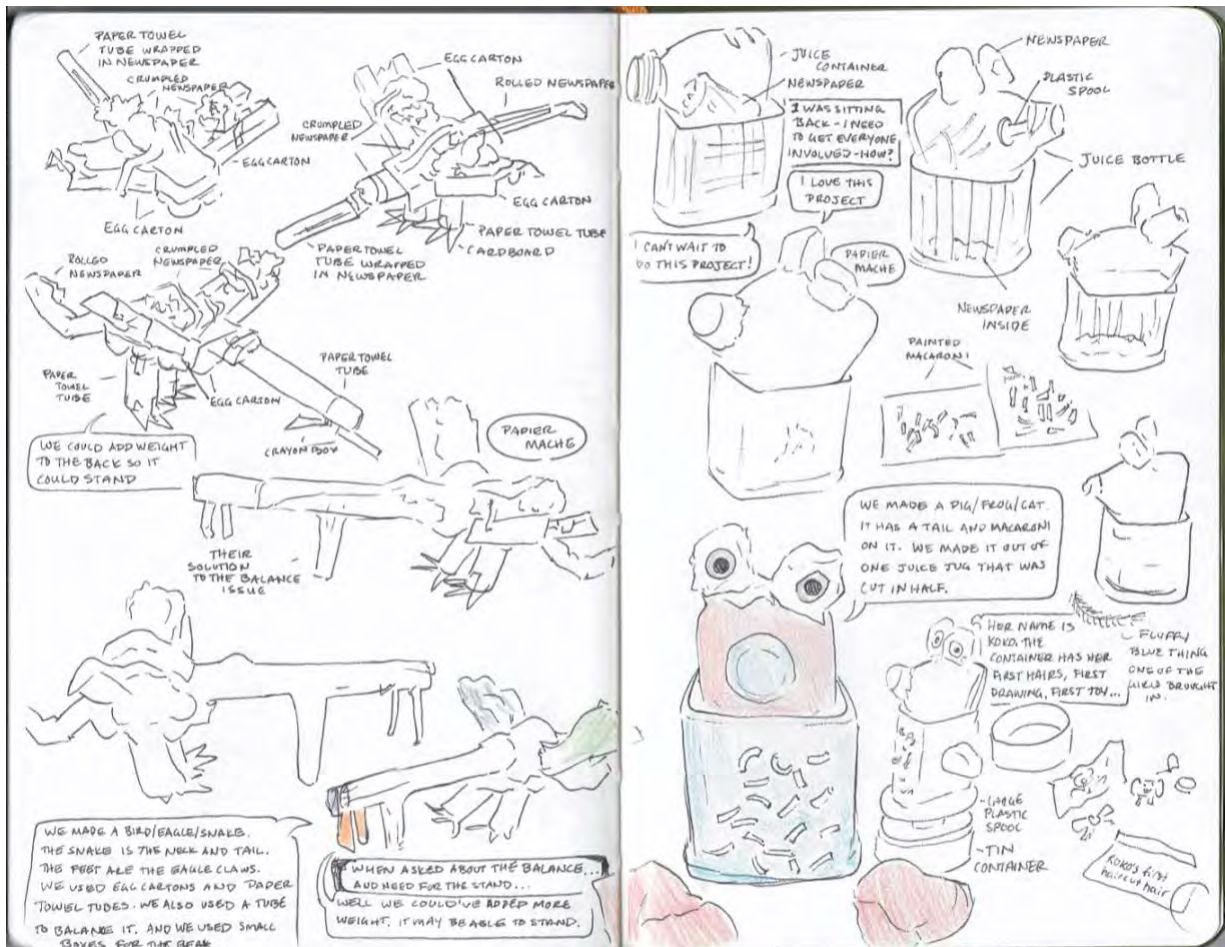 PAPER TOWEL
TUBE WRAPPED
IN NEWSPAPER
CRUMPLED
NEWSPAPER
EGG CARTON
EGG CARTON
EGG CARTON
ROLLED NEWSPAPER
CRUMPLED
NEWSPAPER
EGG CARTON
PAPER TOWEL TUBE
CARDBOARD
PAPER TOWEL
TUBE WRAPPED
IN NEWSPAPER
ROLLED
NEWSPAPER
CRUMPLED
NEWSPAPER
PAPER
TOWEL
TUBE
EGG CARTON
PAPER TOWEL
TUBE
CRAYON BOX
WE COULD ADD WEIGHT
TO THE BACK SO IT
COULD STAND
PAPIER
MACHE
THEIR
SOLUTION
TO THE BALANCE
ISSUE
WE MADE A BIRD/EAGLE/SNAKE.
THE SNAKE IS THE NECK AND TAIL.
THE FEET ARE THE EAGLE CLAWS.
WE USED EGG CARTONS AND PAPER
TOWEL TUBES. WE ALSO USED A TUBE
TO BALANCE IT. AND WE USED SMALL
BOXES FOR THE BEAK
WHEN ASKED ABOUT THE BALANCE...
AND NEED FOR THE STAND...
WELL WE COULD'VE ADDED MORE
WEIGHT. IT MAY BE ABLE TO STAND.
JUICE
CONTAINER
NEWSPAPER
I WAS SITTING
BACK - I NEED
TO GET EVERYONE
INVOLVED - HOW?
I LOVE THIS
PROJECT
I CAN'T WAIT TO
DO THIS PROJECT!
PAPIER
MACHE
NEWSPAPER
PLASTIC
SPOOL
JUICE BOTTLE
NEWSPAPER
INSIDE
PAINTED
MACARONI
WE MADE A PIG/FROG/CAT.
IT HAS A TAIL AND MACARONI
ON IT. WE MADE IT OUT OF
ONE JUICE JUG THAT WAS
CUT IN HALF.
HER NAME IS
KOKO. THE
CONTAINER HAS HER
FIRST HAIRS, FIRST
DRAWING, FIRST TOY...
FLUFFY
BLUE THING
ONE OF THE
GIRLS BROUGHT
IN.
-LARGE
PLASTIC
SPOOL
-TIN
CONTAINER
KOKO's first
haircut hair